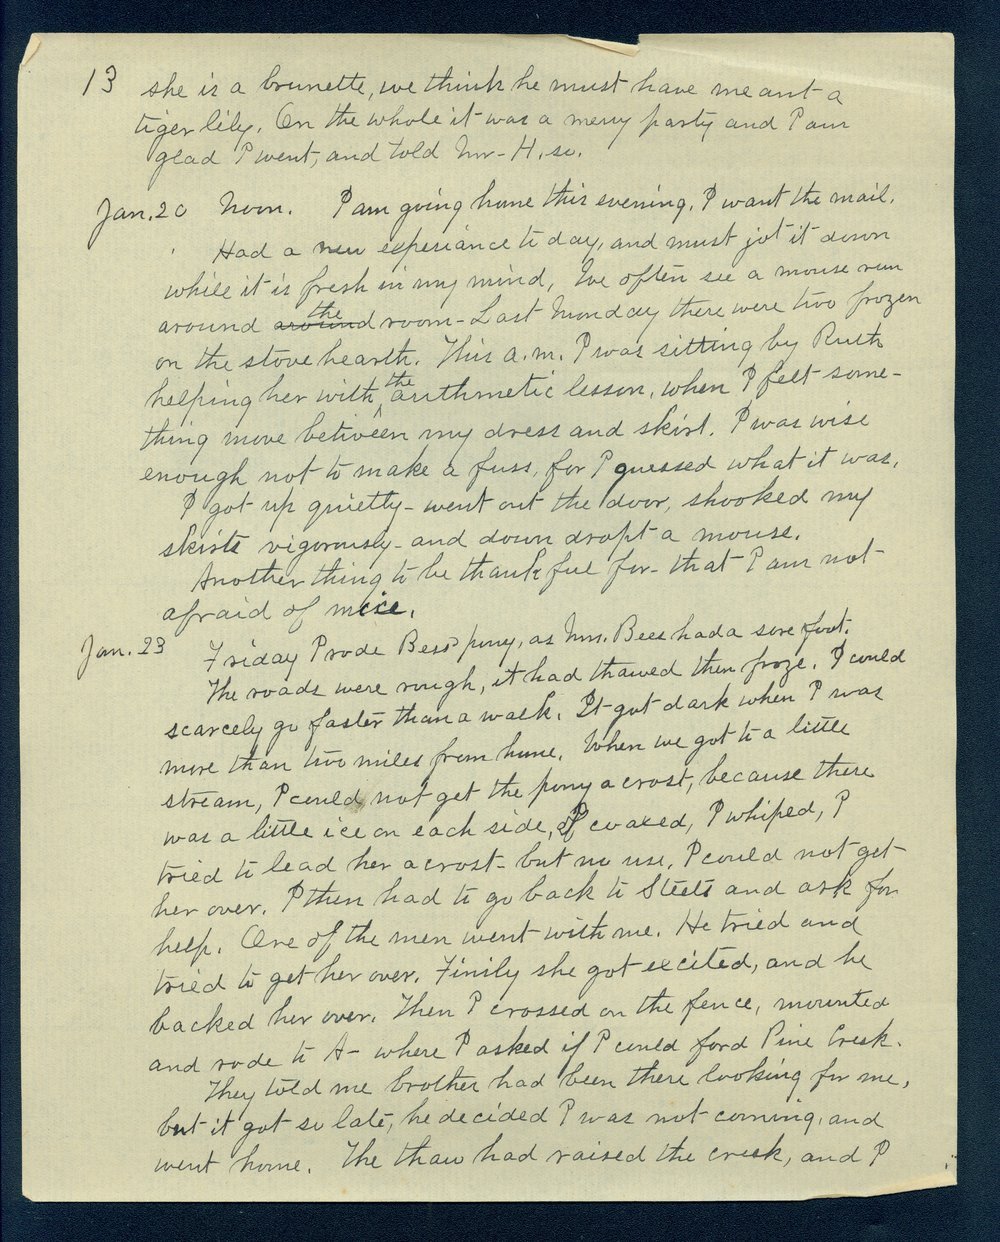 13 she is a brunette, we think he must have meant a
tiger lily. On the whole it was a merry party and I am
glad I went, and told Mr. H. so.
Jan. 20 Noon. I am going home this evening. I want the mail.
Had a new experiance today, and must jot it down
while it is fresh in my mind, We often see a mouse run
around around the room - Last Monday there were two frozen
on the stove hearth. This a.m. I was sitting by Ruth
helping her with the arithmetic lesson, when I felt some-
thing move between my dress and skirt. I was wise
enough not to make a fuss, for I guessed what it was.
I got up quietly - went out the door, shooked my
skirts vigorously - and down dropt a mouse.
Another thing to be thankful for - that I am not
afraid of mice.
Jan. 23 Friday I rode Bess pony, as Mrs. Bees had a sore foot.
The roads were rough, it had thawed then froze. I could
scarcely go faster than a walk. It got dark when I was
more than two miles from home. When we got to a little
stream, I could not get the pony acrost, because there
was a little ice on each side, I coaxed, I whiped, I
tried to lead her acrost - but no use. I could not get
her over. I then had to go back to Steels and ask for
help. One of the men went with me. He tried and
tried to get her over. Finily she got excited, and he
backed her over. Then I crossed on the fence, mounted
and rode to A- where I asked if I could ford Pine Creek.
They told me brother had been there looking for me,
but it got so late, he decided I was not coming, and
went home. The thaw had raised the creek, and I